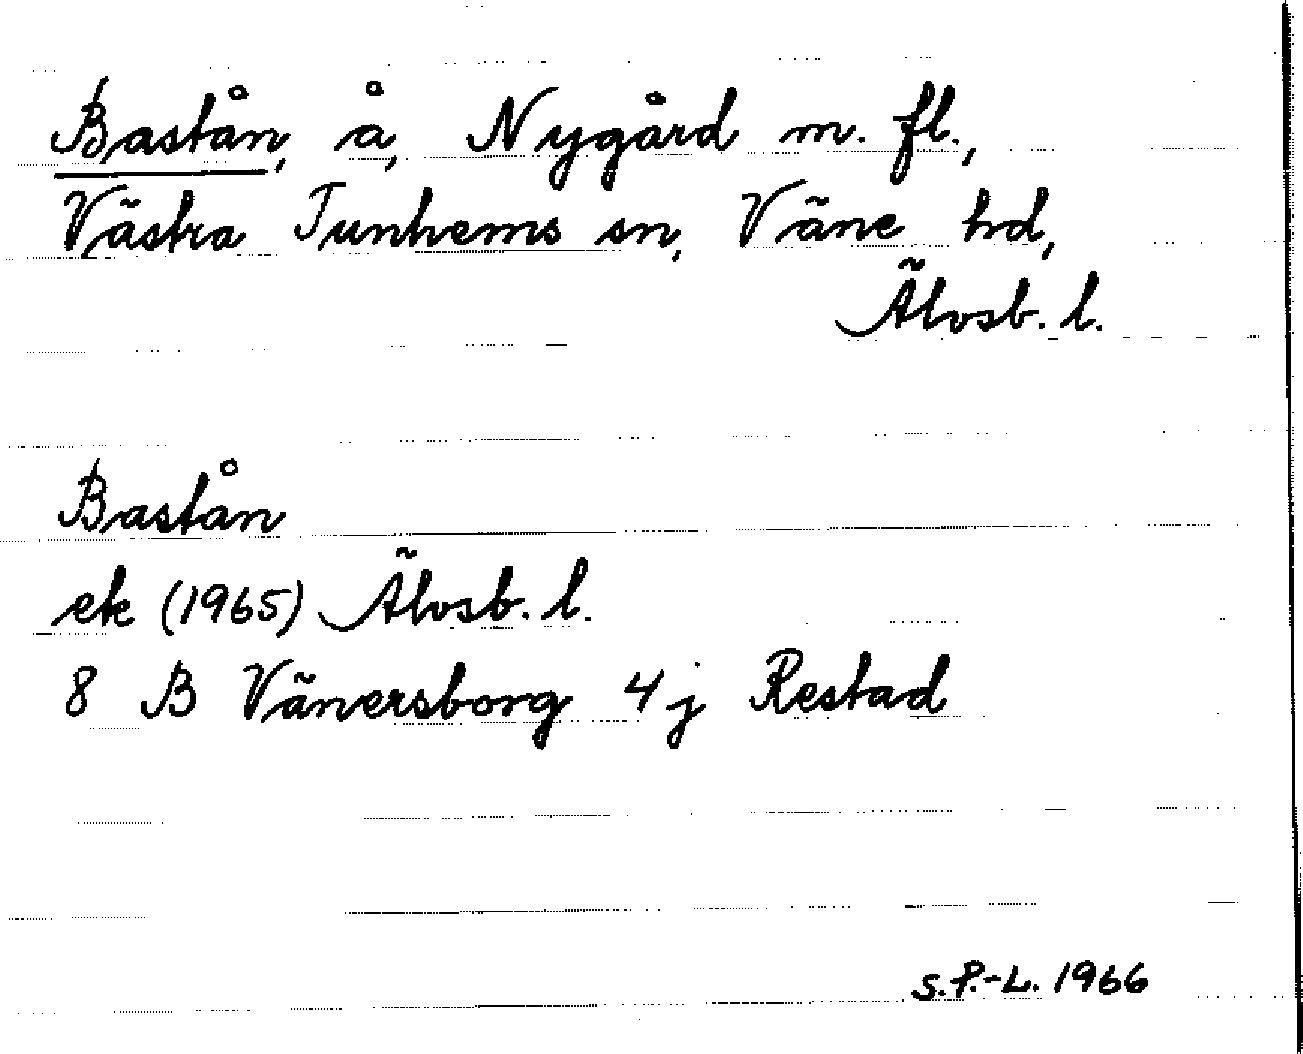 Bastån, å, Nygård m. fl.,
Västra Tunhems sn, Väne hd,
Älvsb. l.
Bastån
ek (1965) Älvsb. l.
8 B Vänersborg 4j Restad
S.P.-L. 1966